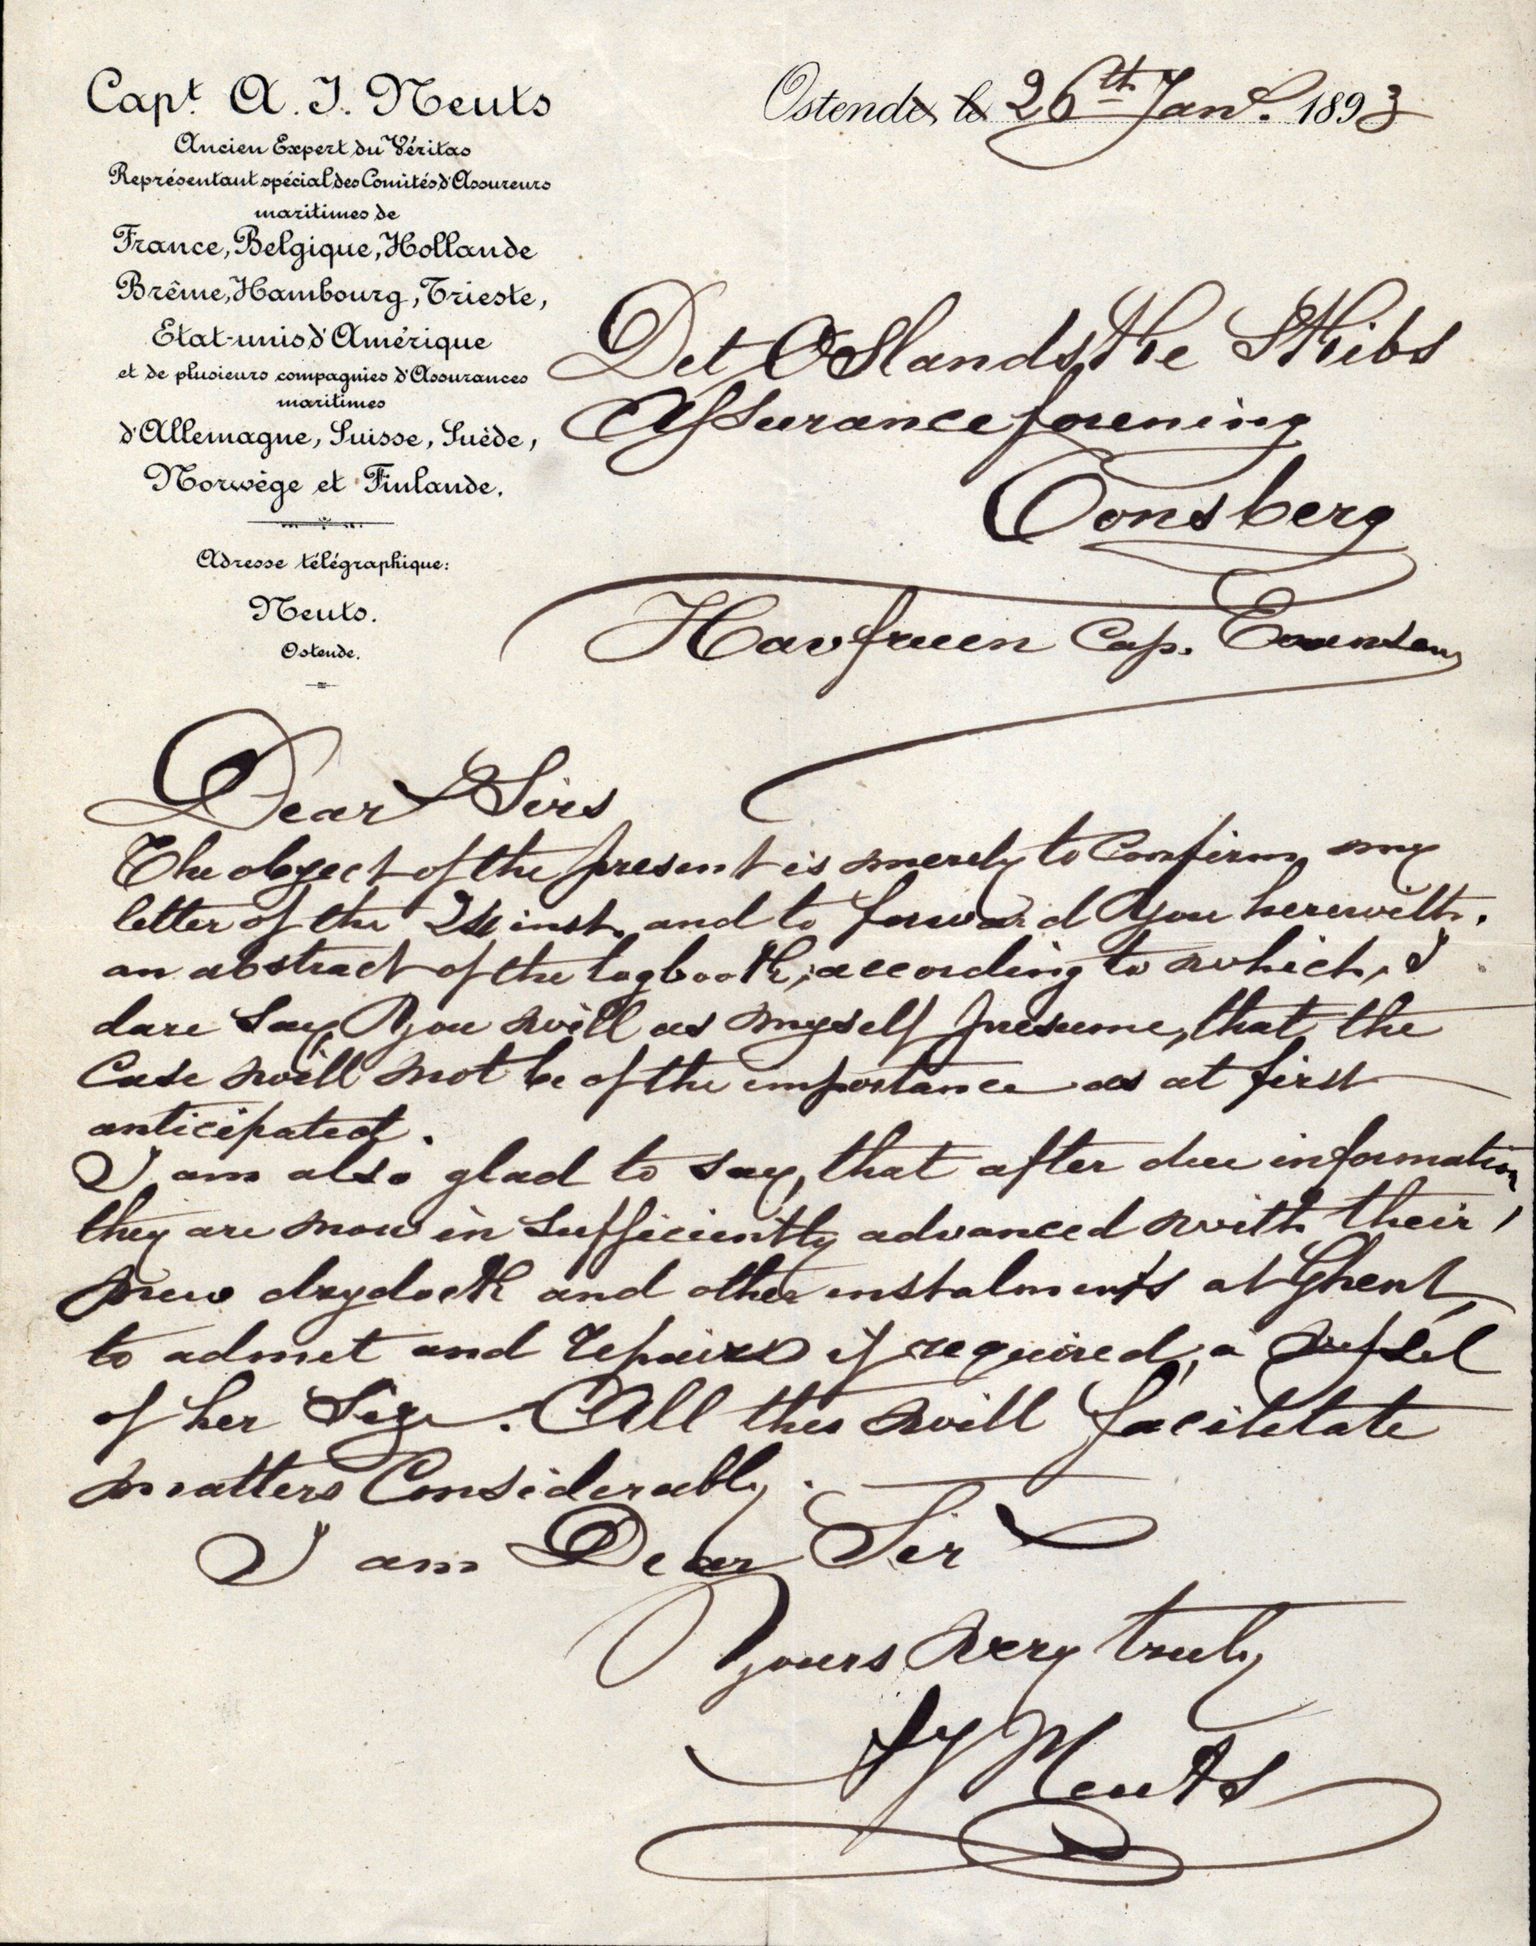 Capt. A. J. Neuts
Ancien Expert du Véritas
Représentant spécial des Comités d'Assureurs
maritimes de
France, Belgique, Hollande
Brême, Hambourg, Trieste,
Etat-unis d'Amérique
et de plusieurs compagnies d'Assurances
maritimes
d'Allemagne, Suisse, Suède,
Norwège et Finlande.
Adresse télégraphique:
Neuts.
Ostende.
Ostende, le 26th Jany. 1893
Det Oslandske Skibs
Assuranceforening
Tonsberg
Havfruen Cap.
Dear Sirs
The object of the present is merely to confirm my
letter of the 24 inst. and to forward you herewith.
an abstract of the logbook, according to which, I
dare say you will as myself presume, that the
Case will not be of the importance as at first
anticipated.
I am also glad to say, that after due information
they are now in sufficiently advanced with their
new drydock and other instalments at Ghent,
to admit and repaired if required, a vessel
of her size. All this will facilitate
matters Considerably.
I am Dear Sir
Yours very truly
AJ Neuts